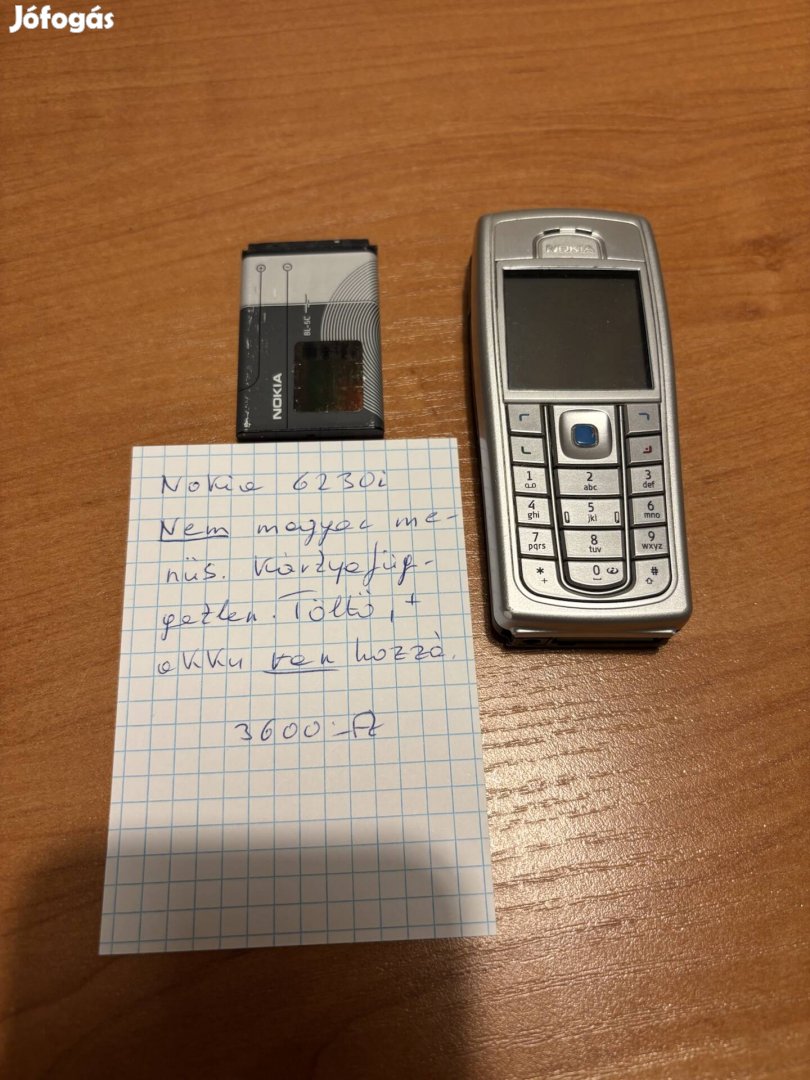 Jófogás
NOKIA
BL-5C
NOKIA
1
2 abc
3 def
4 ghi
5 jkl
6 mno
7 pqrs
8 tuv
9 wxyz
* +
0
#
Nokia 6230i
Nem magyar me-
nüs. Kártyafüg-
getlen. Töltő, +
akku van hozzá.
3600.-Ft